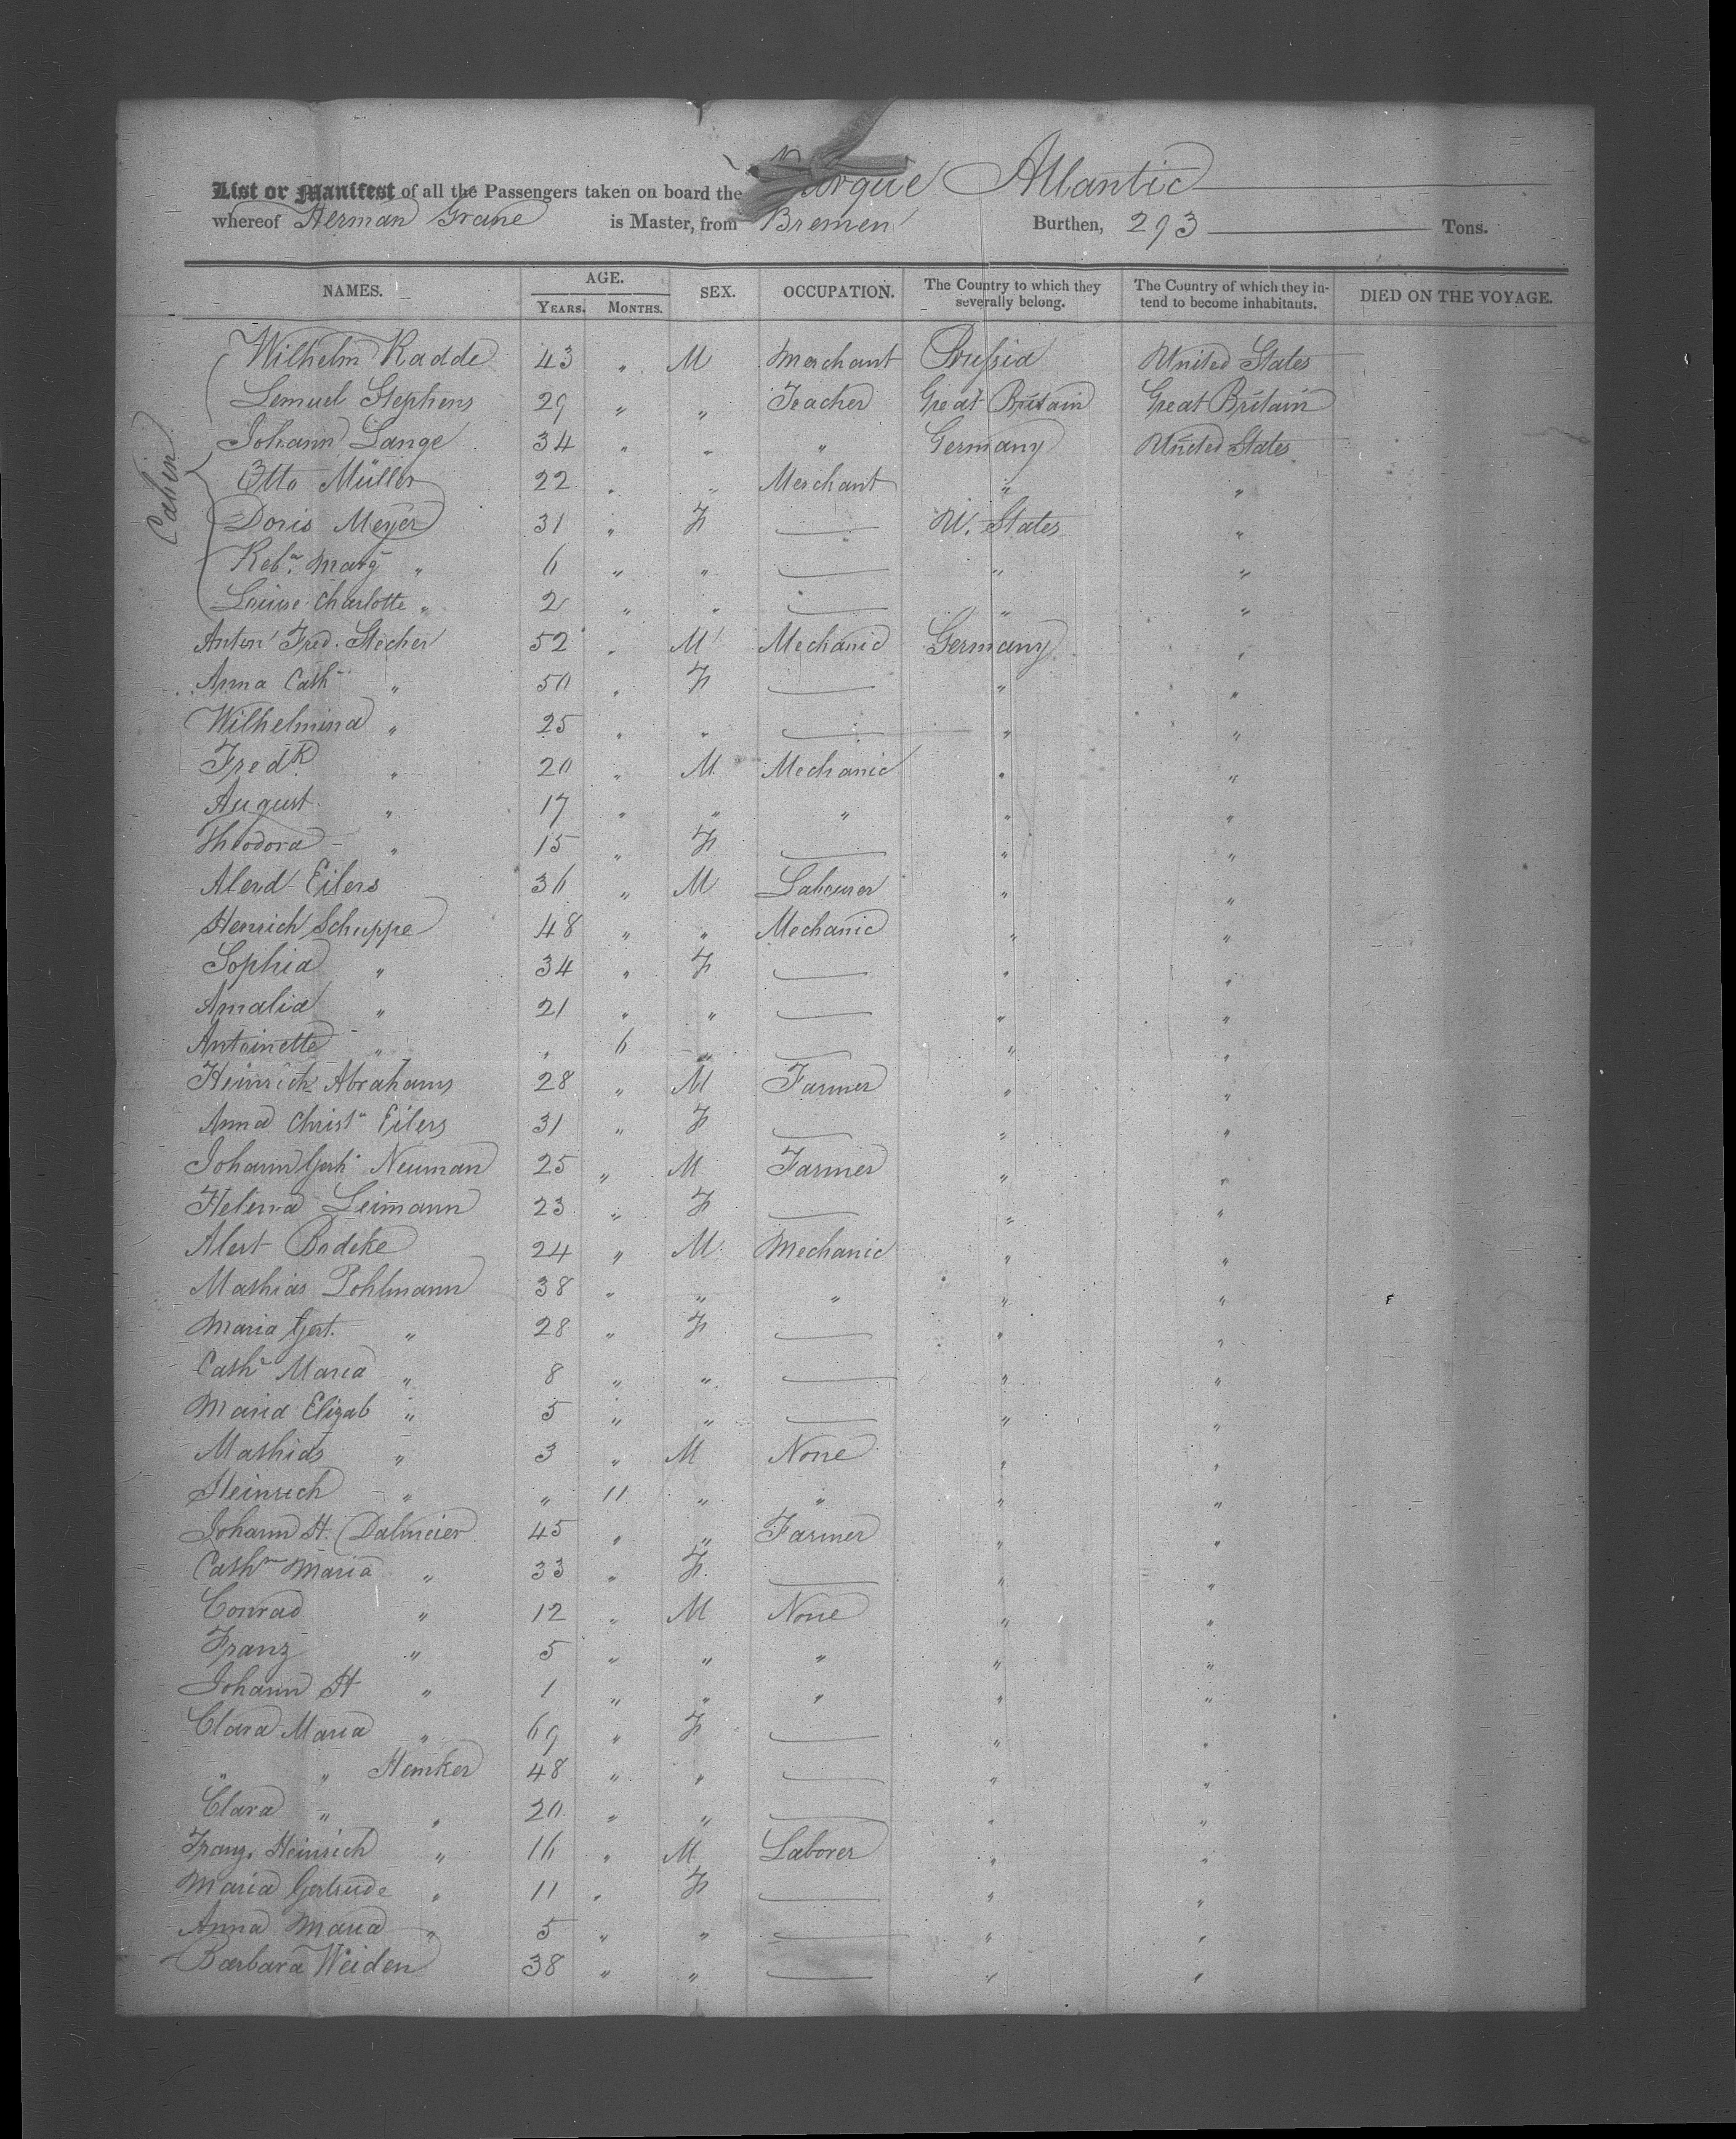 List or Manifest of all the Passengers taken on board the Barque Atlantic
whereof Herman Grane is Master, from Bremen Burthen, 293 Tons.
NAMES. AGE. YEARS. MONTHS. SEX. OCCUPATION. The Country to which they severally belong. The Country of which they intend to become inhabitants. DIED ON THE VOYAGE.
Cabin
Wilhelm Radde 43 " M Merchant Prussia United States
Lemuel Stephens 29 " " Teacher Great Britain Great Britain
Johann Lange 34 " " " Germany United States
Otto Müller 22 " " Merchant " "
Doris Meyer 31 " F — U. States "
Reb. Marg " 6 " " — " "
Louise Charlotte " 2 " " — " "
Anton Fred. Stecher 52 " M Mechanic Germany "
Anna Cath " 50 " F — " "
Wilhelmina " 25 " " — " "
Fredk " 20 " M Mechanic " "
August " 17 " " " " "
Theodora " 15 " F — " "
Alerd Eilers 36 " M Labourer " "
Henrich Schuppe 48 " " Mechanic " "
Sophia " 34 " F — " "
Amalia " 21 " " — " "
Antoinette " " 6 " — " "
Heinrich Abrahams 28 " M Farmer " "
Anna Christ Eilers 31 " F — " "
Johann Gerh Neuman 25 " M Farmer " "
Helena Leimann 23 " F — " "
Alert Bodeke 24 " M Mechanic " "
Mathias Pohlmann 38 " " " " "
Maria Gert. " 28 " F — " "
Cath Maria " 8 " " — " "
Maria Elizab " 5 " " — " "
Mathias " 3 " M None " "
Heinrich " " 11 " " " "
Johann H. Dalmeier 45 " " Farmer " "
Cath Maria " 33 " F — " "
Conrad " 12 " M None " "
Franz " 5 " " " " "
Johann H " 1 " " " " "
Clara Maria " 69 " F — " "
" " Hemker 48 " " — " "
Clara " " 20 " " — " "
Franz Heinrich " 16 " M Laborer " "
Maria Gertrude " 11 " F — " "
Anna Maria " 5 " " — " "
Barbara Weiden 38 " " — " "